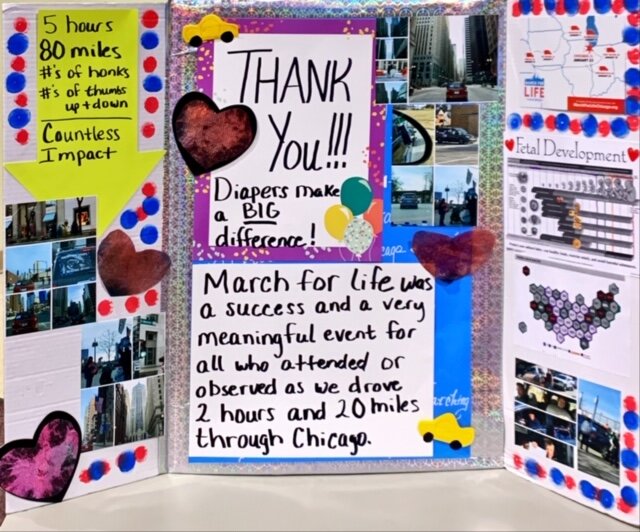 5 hours
80 miles
#'s of honks
#'s of thumbs
up + down
Countless
Impact
THANK
You!!!
Diapers make
a BIG
difference!
March for life was
a success and a very
meaningful event for
all who attended or
observed as we drove
2 hours and 20 miles
through Chicago.
LIFE
Fetal Development